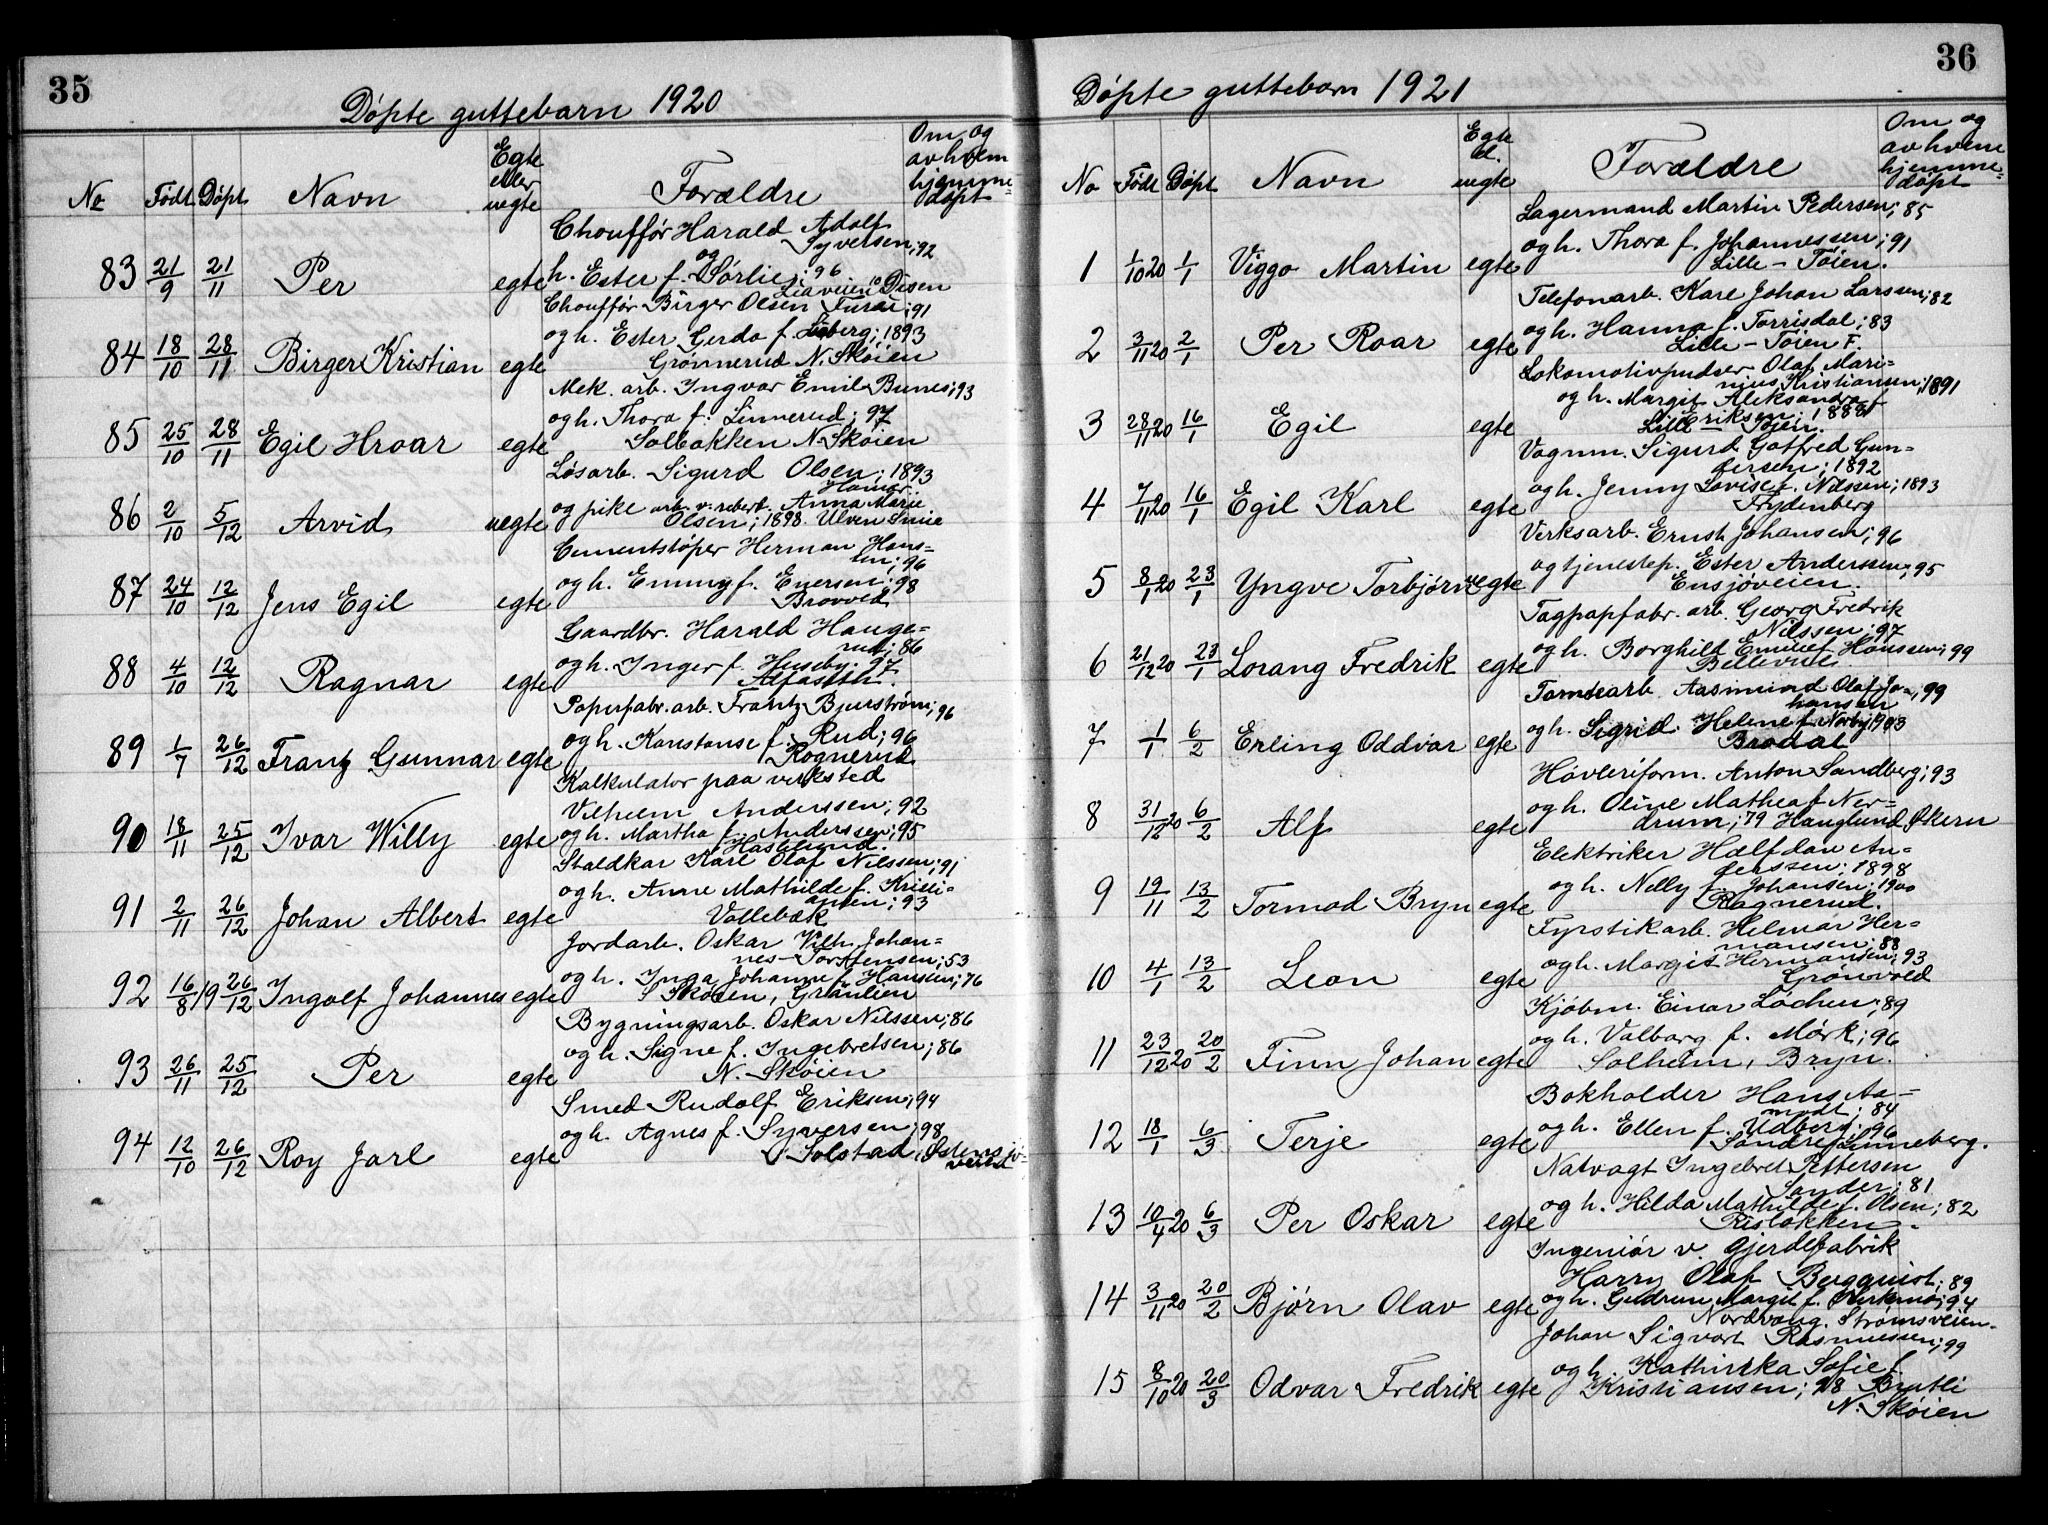 35
Døpte guttebarn 1920
No Født Døpt Navn Egte eller uegte Forældre Om og av hvem hjemme=døpt
Chouffør Harald Adolf
Syversen; 92
83 21/9 21/11 Per egte og h. Ester f. Sørlie; 96
Liaveien 10 Disen
Chouffør Birger Olsen Furui; 91
84 18/10 28/11 Birger Kristian egte og h. Ester Gerda f. ; 1893
Grønnerud N. Skøien
Mek. arb. Ingvar Emil Bunes; 93
85 25/10 28/11 Egil Hroar egte og h. Thora f. Linnerud; 97
Solbakken N. Skøien
Løsarb. Sigurd Olsen; 1893
Hamar.
86 2/10 5/12 Arvid uegte og pike arb. v. rebert. Anna Marie
Olsen; 1898. Ulven Smie
Cementstøper Herman Hans=
en; 96
87 24/10 12/12 Jens Egil egte og h. Emmy f. Enersen; 98
Brovold
Gaardbr. Harald Hauge=
rud; 86
88 4/10 12/12 Ragnar egte og h. Inger f. Huseby; 97
Alfaseth.
Papirfabr. arb. Frantz Bjurstrøm; 96
89 1/7 26/12 Frantz Gunnar egte og h. Konstanse f. Rud; 96
Rognerud
Kalkulator paa verksted
Vilhelm Anderssen; 92
90 18/11 25/12 Ivar Willy egte og h. Martha f. Anderssen; 95
Haslelund.
Staldkar Karl Olaf Nilssen; 91
91 2/11 26/12 Johan Albert egte og h. Anne Mathilde f. Kristi=
ansen; 93
Vollebæk
Jordarb. Oskar Vilh. Johan=
nes Torstensen; 53
92 16/8 19 26/12 Ingolf Johannes egte og h. Inga Johanne f. Hansen; 76
Skøien, Grånlien
Bygningsarb. Oskar Nilssen; 86
93 26/11 25/12 Per egte og h. Signe f. Ingebretsen; 86
N. Skøien
Smed Rudolf Eriksen; 94
94 12/10 26/12 Roy Jarl egte og h. Agnes f. Syversen; 98
Solstad, Østensjø=
veien
36
Døpte guttebarn 1921
No Født Døpt Navn Egte el. uegte Forældre Om og av hvem hjemme=døpt
Lagermand Martin Pedersen; 85
1 1/10 20 1/1 Viggo Martin egte og h. Thora f. Johannessen; 91
Lille-Tøien.
Telefonarb. Karl Johan Larssen; 82
2 3/11 20 2/1 Per Roar egte og h. Hanna f. Torrisdal; 83
Lille-Tøien F.
Lokomotivpudser Olaf Mari=
nius Kristiansen; 1891
3 28/11 20 16/1 Egil egte og h. Margit Aleksandra f.
Eriksen; 1888
Lille-Tøien.
Vognm. Sigurd Gotfred Gun=
dersen; 1892
4 7/11 20 16/1 Egil Karl egte og h. Jenny Lovise f. Nilssen; 1893
Frydenberg
Verksarb. Ernst Johansen; 96
5 8/1 20 23/1 Yngve Torbjørn uegte og tjenestep. Ester Anderssen; 95
Ensjøveien.
Tagpapfabr. arb. Georg Fredrik
Nilssen; 97
6 21/12 20 23/1 Lorang Fredrik egte og h. Borghild Emilie f. Hanssen; 99
Bellevue
Tomtearb. Aasmund Olaf Jo=; 99
hansen
7 1/1 6/2 Erling Oddvar egte og h. Sigrid Helene f. Norby; 1903
Brodal
Høvleriform. Anton Sandberg; 93
8 31/12 20 6/2 Alf egte og h. Oline Mathea f. Ner=
drum; 79 Hauglund, Økern
Elektriker Halfdan An=
derssen; 1898
9 19/11 13/2 Tormod Bryn egte og h. Nelly f. Johansen; 1900
Rognerud.
Fyrstikarb. Helmar Her=
mansen; 88
10 4/1 13/2 Leon egte og h. Margit Hermansen; 93
Grönvold
Kjøbm. Einar Løchen; 89
11 23/12 20 20/2 Finn Johan egte og h. Valborg f. Mørk; 96
Solheim, Bryn.
Bokholder Hans Aa=
modt; 84
12 18/1 6/3 Terje egte og h. Ellen f. Udberg; 96
Søndre Linneberg.
Natvagt Ingebret Pettersen
Sander; 81
13 10/4 20 6/3 Per Oskar egte og h. Hilda Mathilde f. Olsen; 82
Risløkken.
Ingeniør v. Gjerdefabrik
Harry Olaf Bergquist; 89
14 3/11 20 20/2 Bjørn Olav egte og h. Gudrun Margit f. ; 94
Nordvang. Strømsveien.
Johan Sigvart Rasmussen; 99
15 8/10 20 20/3 Odvar Fredrik egte og h. Kathinka Sofie f.
Kristiansen; 98 Bratli
N. Skøien